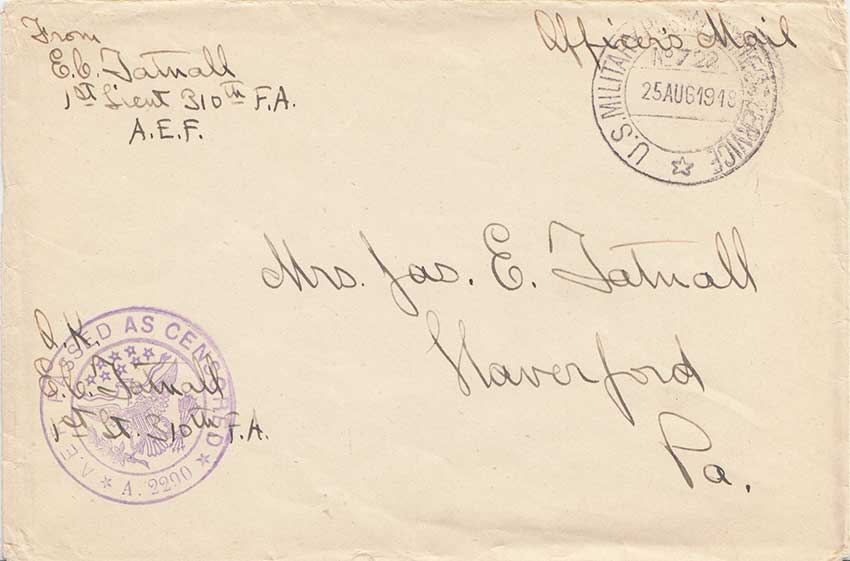 From
E.C. Tatnall
1st Lieut 310th F.A.
A.E.F.
Officer's Mail
U.S. MILITARY SERVICE
No 722
25AUG1918
Mrs. Jas. E. Tatnall
Haverford
Pa.
O.K.
E.C. Tatnall
1st Lt. 310th F.A.
A.E.F. PASSED AS CENSORED
A. 2290